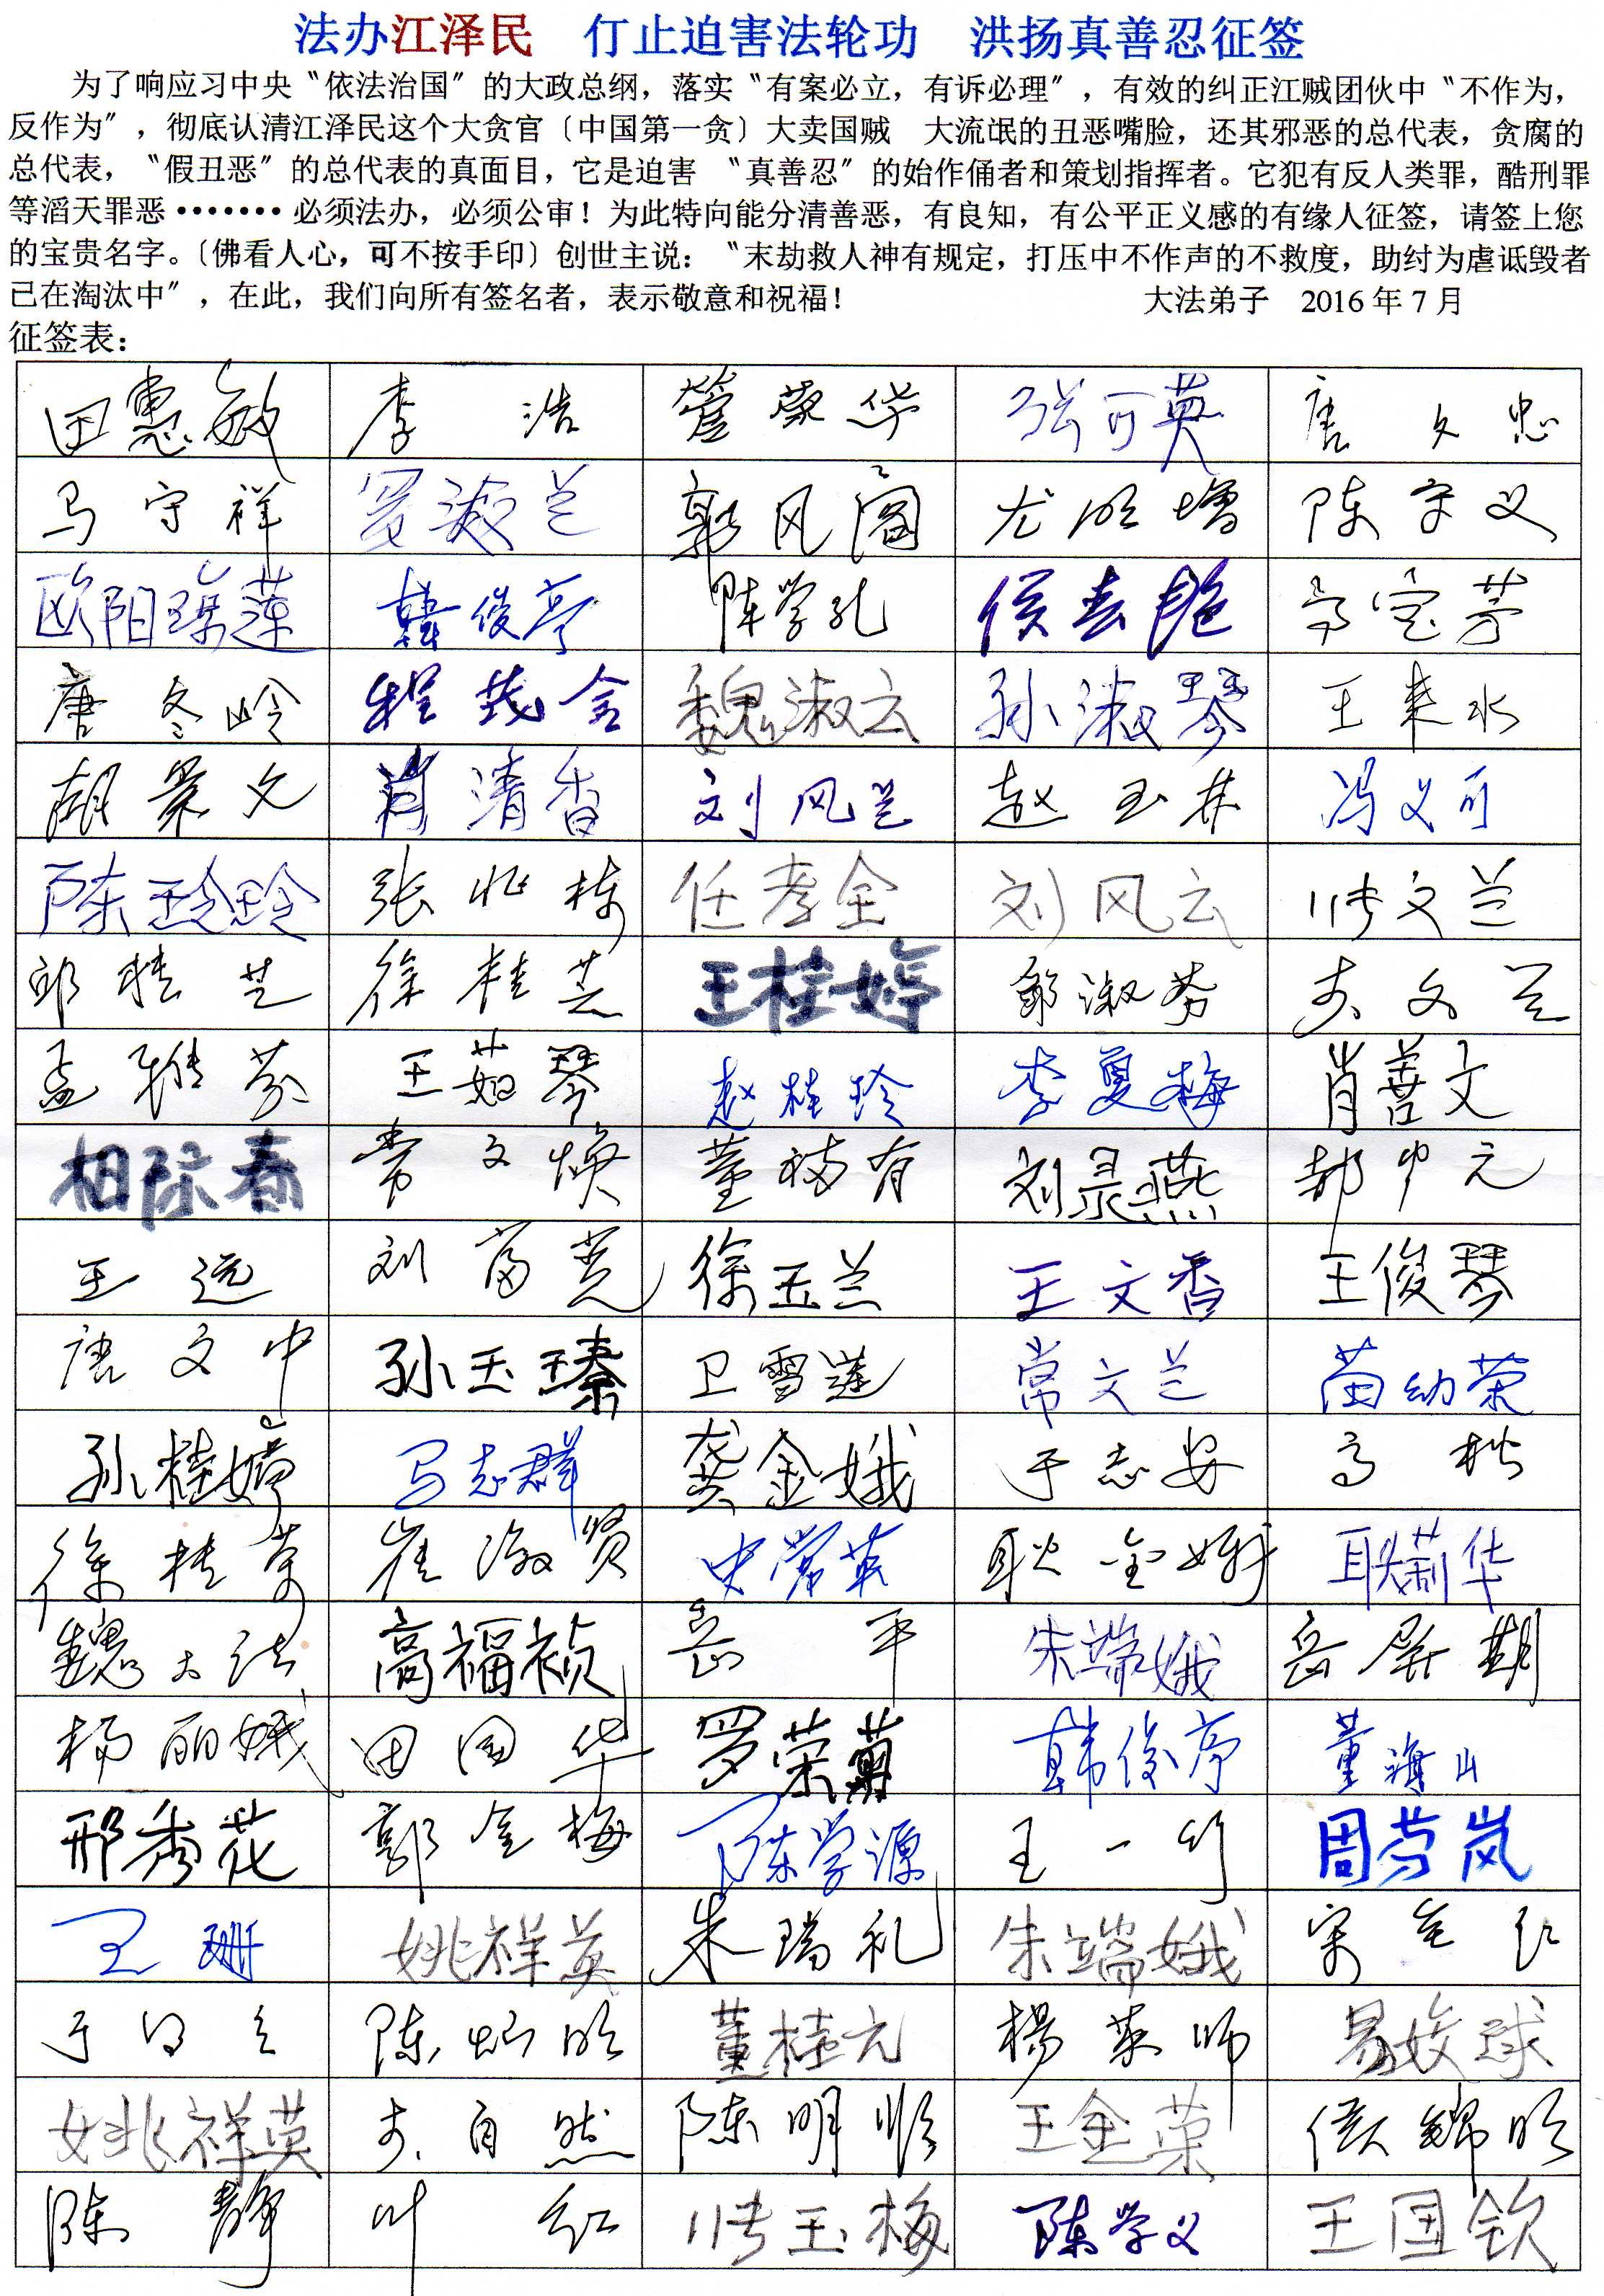 法办江泽民 仃止迫害法轮功 洪扬真善忍征签
为了响应习中央〝依法治国〞的大政总纲，落实〝有案必立，有诉必理〞，有效的纠正江贼团伙中〝不作为，
反作为〞，彻底认清江泽民这个大贪官〔中国第一贪〕大卖国贼 大流氓的丑恶嘴脸，还其邪恶的总代表，贪腐的
总代表，〝假丑恶〞的总代表的真面目，它是迫害 〝真善忍〞的始作俑者和策划指挥者。它犯有反人类罪，酷刑罪
等滔天罪恶·······必须法办，必须公审！为此特向能分清善恶，有良知，有公平正义感的有缘人征签，请签上您
的宝贵名字。〔佛看人心，可不按手印〕创世主说：〝末劫救人神有规定，打压中不作声的不救度，助纣为虐诋毁者
已在淘汰中〞，在此，我们向所有签名者，表示敬意和祝福！ 大法弟子 2016年7月
征签表：
田惠敏 李浩 管荣华 张可英 唐文忠
马守祥 罗淑兰 郭风阁 尤明增 陈守义
欧阳瑞莲 韩俊亭 陈学孔 侯春艳 高宝芳
唐冬岭 程茂金 魏淑云 孙淑琴 王来水
胡景文 肖清香 刘风兰 赵玉林 冯义可
陈玲玲 张兆栋 任孝全 刘风云 张文兰
郭桂芝 徐桂芝 王桂婷 邹淑芬 文兰
孟雅芬 王茹琴 赵桂玲 李夏梅 肖善文
相际春 常文焕 董福有 刘录燕 郝中元
王远 刘富堂 徐玉兰 王文香 王俊琴
唐文中 孙玉臻 卫雪莲 常文兰 苗幼荣
孙桂婷 马志群 龚金娥 于志安 高松
徐桂芳 崔淑贤 史常英 耿金娥 耿莉华
魏大法 高福祯 岳平 朱端娥 岳屏期
杨丽娥 田国华 罗荣菊 韩俊亭 董海山
邢秀花 郭金梅 陈学源 王一竹 周芳岚
王珊 姚祥英 朱瑞礼 朱端娥 宋红
于 陈明 董桂元 杨荣师 易姣球
姚祥英 自然 陈明顺 王金荣 侯锦明
陈静 叶红 张玉梅 陈学义 王国钦